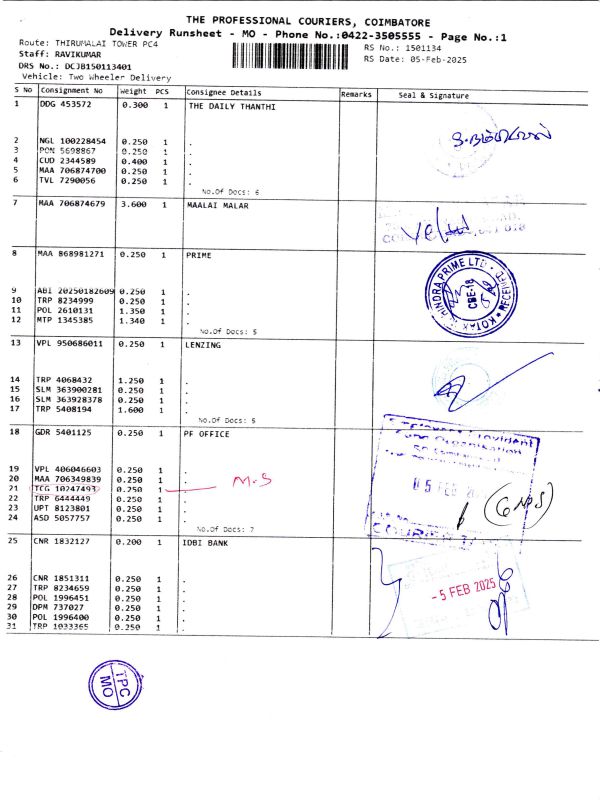 THE PROFESSIONAL COURIERS, COIMBATORE
Delivery Runsheet - MO - Phone No.:0422-3505555 - Page No.:1
Route: THIRUMALAI TOWER PC4
RS No.: 1501134
Staff: RAVIKUMAR
RS Date: 05-Feb-2025
DRS No.: DCJB150113401
Vehicle: Two Wheeler Delivery
S No Consignment No Weight PCS Consignee Details Remarks Seal & Signature
1 DDG 453572 0.300 1 THE DAILY THANTHI
2 NGL 100228454 0.250 1 .
3 PON 5698867 0.250 1 .
4 CUD 2344589 0.400 1 .
5 MAA 706874700 0.250 1 .
6 TVL 7290056 0.250 1 .
No.Of Docs: 6
7 MAA 706874679 3.600 1 MAALAI MALAR
8 MAA 868981271 0.250 1 PRIME
9 ABI 20250182609 0.250 1 .
10 TRP 8234999 0.250 1 .
11 POL 2610131 1.350 1 .
12 MTP 1345385 1.340 1 .
No.Of Docs: 5
KOTAK MAHINDRA PRIME LTD
RECEIVED
CBE-18
13 VPL 950686011 0.250 1 LENZING
14 TRP 4068432 1.250 1 .
15 SLM 363900281 0.250 1 .
16 SLM 363928378 0.250 1 .
17 TRP 5408194 1.600 1 .
No.Of Docs: 5
18 GDR 5401125 0.250 1 PF OFFICE
19 VPL 406046603 0.250 1 .
20 MAA 706349839 0.250 1 .
21 TCG 10247493 0.250 1 . M.S
22 TRP 6444449 0.250 1 .
23 UPT 8123801 0.250 1 .
24 ASD 5057757 0.250 1 .
No.Of Docs: 7
05 FEB
25 CNR 1832127 0.200 1 IDBI BANK
26 CNR 1851311 0.250 1 .
27 TRP 8234659 0.250 1 .
28 POL 1996451 0.250 1 .
29 DPM 737027 0.250 1 .
30 POL 1996400 0.250 1 .
31 TRP 1033365 0.250 1 .
-5 FEB 2025
TPC
MO